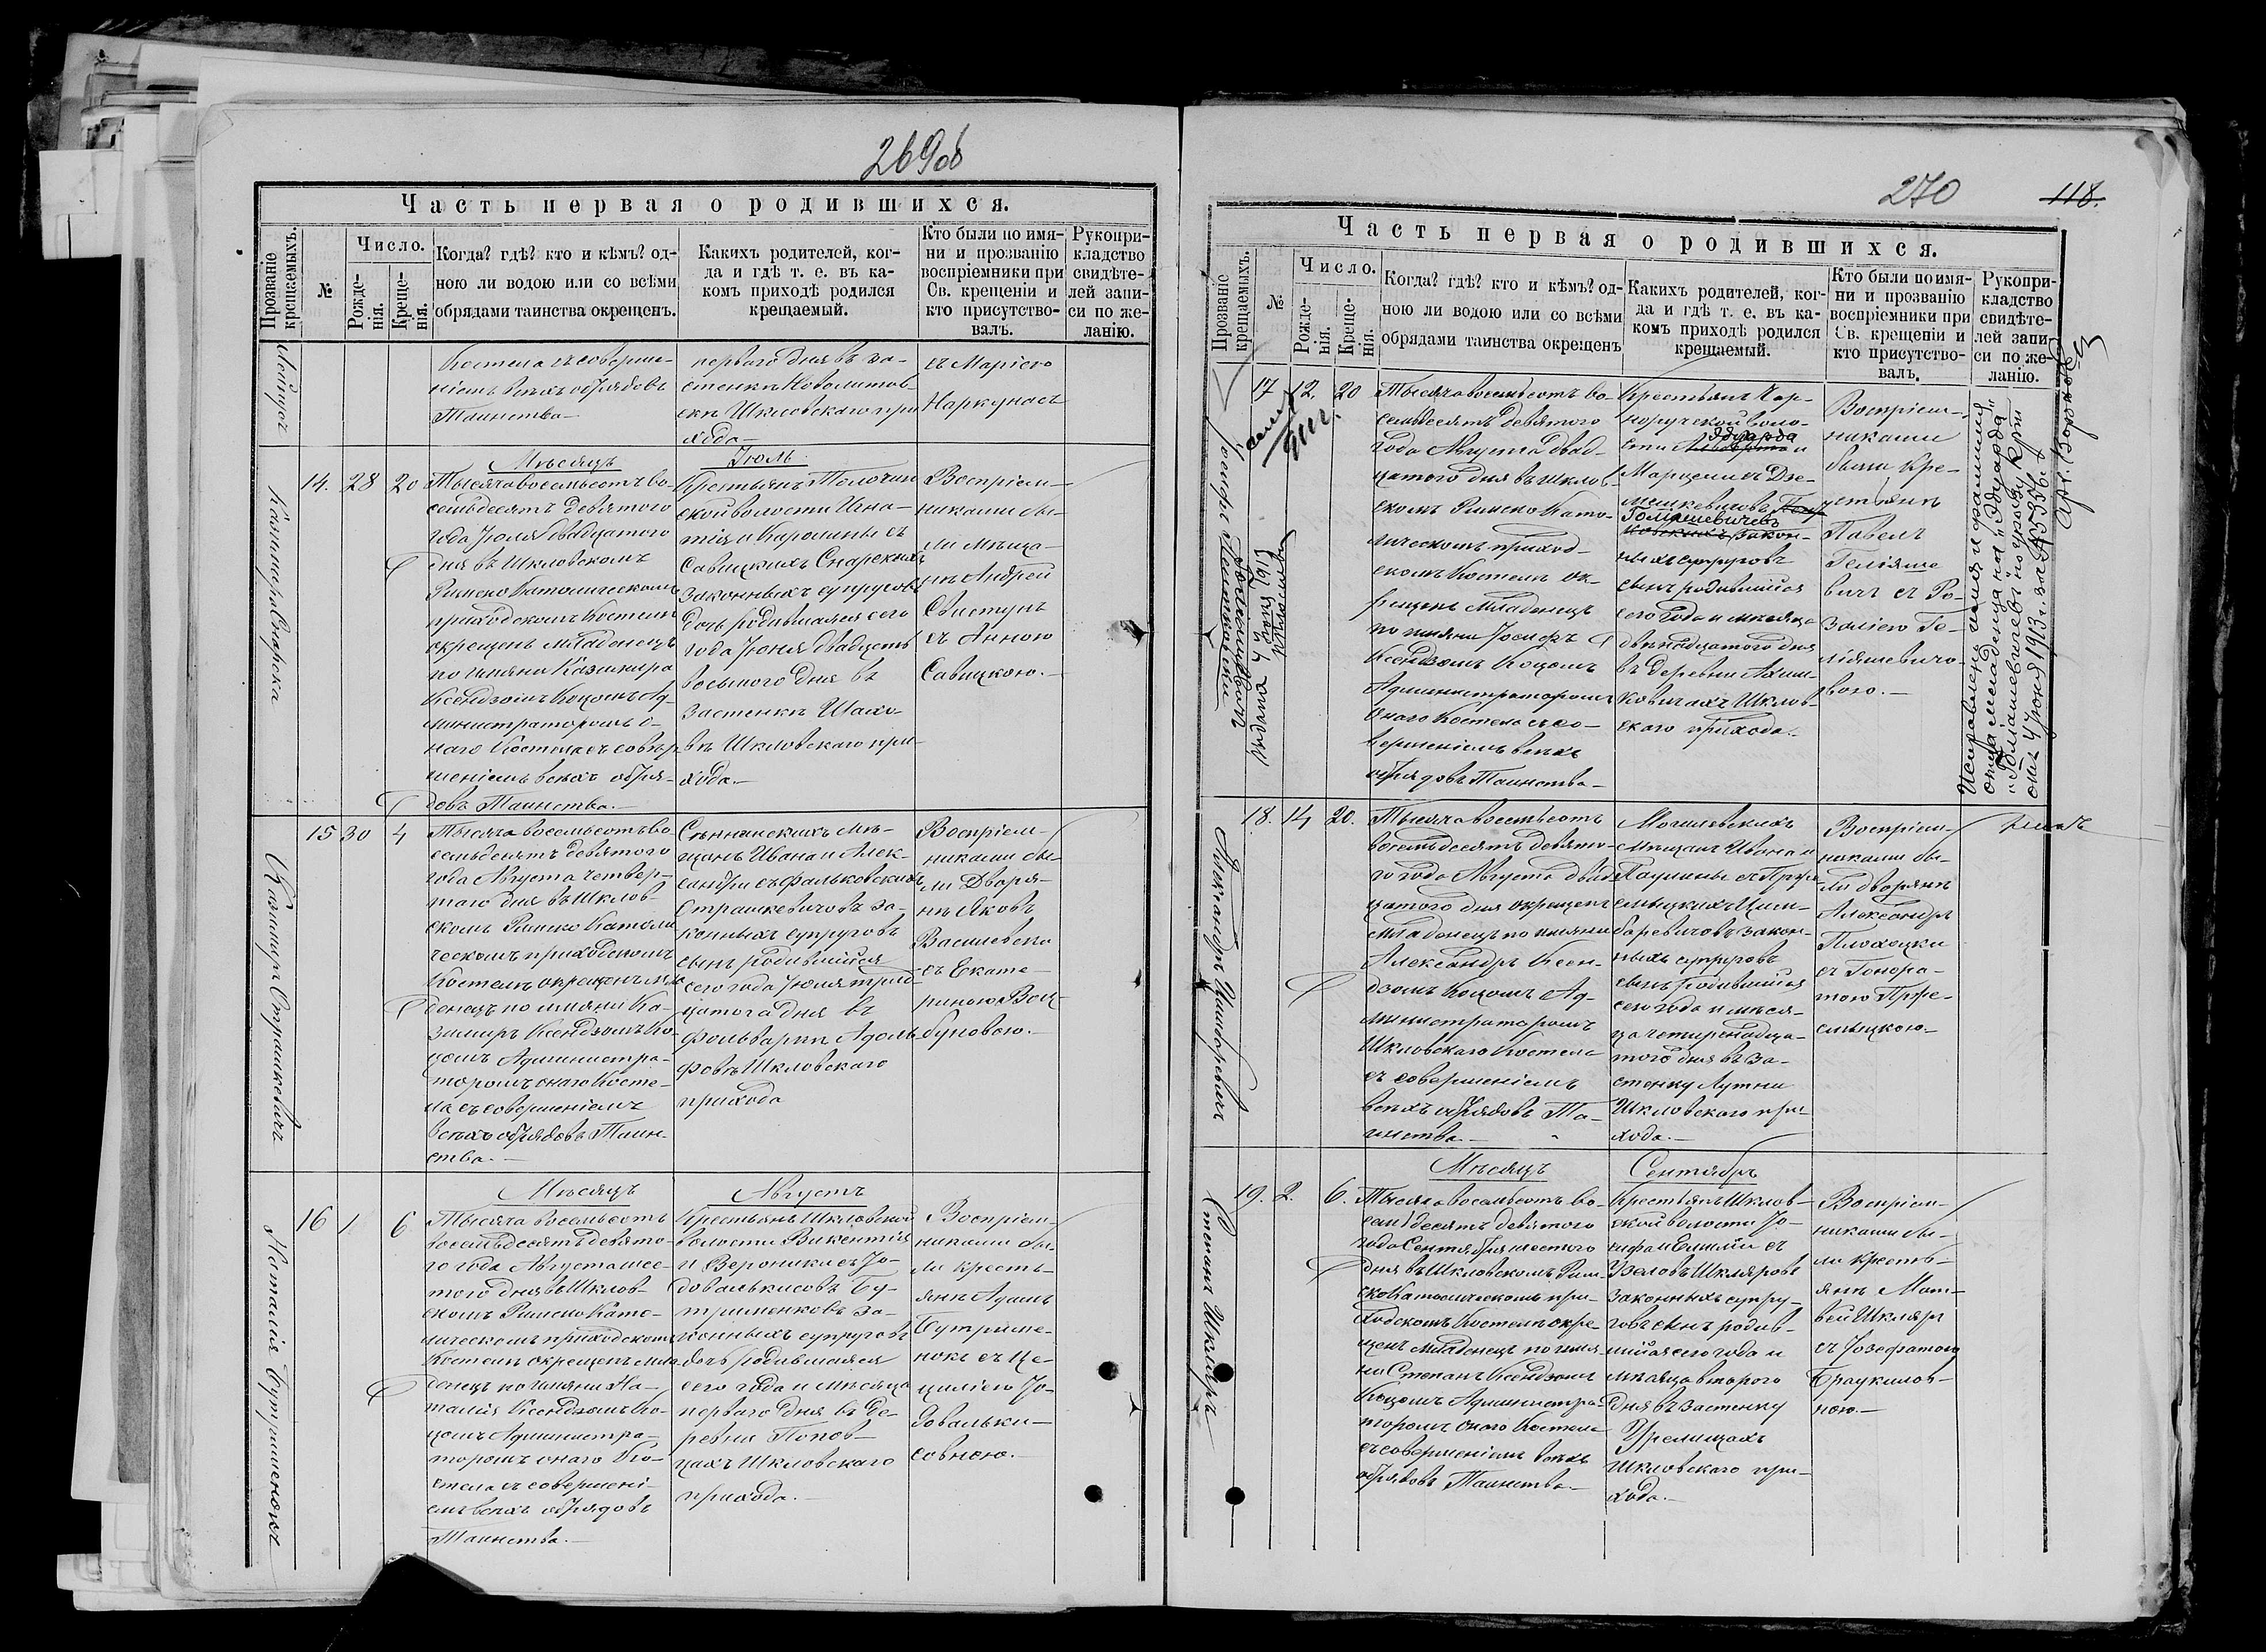 269об
Часть первая о родившихся.
Прозваніе крещаемыхъ.
№
Число.
Рожде-
нія.
Креще-
нія.
Когда? гдѣ? кто и кѣмъ? од-
ною ли водою или со всѣми
обрядами таинства окрещенъ.
Какихъ родителей, ког-
да и гдѣ т. е. въ ка-
комъ приходѣ родился
крещаемый.
Кто были по имя-
ни и прозванію
воспріемники при
Св. крещеніи и
кто присутство-
валъ.
Рукопри-
кладство
свидѣте-
лей запи-
си по же-
ланію.
Костела съ соверше-
ніемъ всѣхъ обрядовъ
Таинства.—
перваго дня въ за-
стенкѣ
Шкловскаго при
хода—
съ Маріею
Наркунасъ
Мѣсяцъ
Іюль
14. 28 20
Тысяча восемьсотъ во-
семьдесятъ девятого
года Іюля двадцатого
дня въ Шкловскомъ
Римско Католическомъ
приходскомъ Костелѣ
окрещенъ младенецъ
по имяни Казимира
Ксендзомъ Коцомъ Ад-
министраторомъ о-
наго Костела съ совер-
шеніемъ всѣхъ обря-
довъ Таинства.—
Крестьянъ Толочин
ской волости Игна-
тія и Каролины съ
Савицкихъ Снарскихъ
законныхъ супруговъ
дочь родившаяся сего
года Іюня двадцать
восьмого дня въ
Застенкѣ Шахо-
вѣ Шкловскаго при-
хода.—
Воспріем-
никами бы-
ли мѣща-
нѣ Андрей
Свистунъ
съ Анною
Савицкою.—
Казимира Снарска
15 30 4
Тысяча восемьсотъ во-
семьдесятъ девятого
года Августа четвер-
того дня въ Шклов-
скомъ Римско Католи
ческомъ приходскомъ
Костелѣ окрещенъ мла
денецъ по имяни Ка-
зимиръ Ксендзомъ Ко-
цомъ Администра-
торомъ онаго Косте-
ла съ совершеніемъ
всѣхъ обрядовъ Таин-
ства.—
Сѣннинскихъ мѣ-
щанъ Ивана и Алек-
сандры съ Фальковскихъ
Страшкевичовъ за-
конныхъ супруговъ
сынъ родившійся
сего года Іюля трид-
цатого дня въ
фольваркѣ Адоль-
фовѣ Шкловскаго
прихода
Воспріем-
никами бы-
ли Дворя-
нѣ Яковъ
Василевски
съ Екате-
риною Вой-
буновою.—
Казимиръ Страшкевичъ
Мѣсяцъ
Августъ
16 1 6
Тысяча восемьсотъ
восемьдесятъ девято-
го года Августа шес-
того дня въ Шклов-
скомъ Римско Като-
лическомъ приходскомъ
Костелѣ окрещенъ мла
денецъ по имяни На-
талія Ксендзомъ Ко-
цомъ Администра-
торомъ онаго Ко-
стела съ совершені-
емъ всѣхъ обрядовъ
Таинства.—
Крестьянъ Шкловской
волости Викентія
и Вероники съ Іо-
довалькисовъ Бу-
трименковъ за-
конныхъ супруговъ
дочь родившаяся
сего года и мѣсяца
перваго дня въ де-
ревни Попов-
цахъ Шкловскаго
прихода.—
Воспріем-
никами бы-
ли кресть-
янѣ Адамъ
Бутриме-
нокъ съ Це-
циліею Іо-
довальки-
совною.—
Наталія Бутрименокъ
270
118.
Часть первая о родившихся.
Прозваніе крещаемыхъ.
№
Число.
Рожде-
нія.
Креще-
нія.
Когда? гдѣ? кто и кѣмъ? од-
ною ли водою или со всѣми
обрядами таинства окрещенъ
Какихъ родителей, ког-
да и гдѣ т. е. въ ка-
комъ приходѣ родился
крещаемый.
Кто были по имя-
ни и прозванію
воспріемники при
Св. крещеніи и
кто присутство-
валъ.
Рукопри-
кладство
свидѣте-
лей запи-
си по же-
ланію.
17 12. 20
Тысяча восемьсотъ во-
семьдесятъ девятого
года Августа двад-
цатого дня въ Шклов-
скомъ Римско Като-
лическомъ приход-
скомъ Костелѣ ок-
рещенъ младенецъ
по имяни Іосифъ
Ксендзомъ Коцомъ
Администраторомъ
онаго Костела съ со-
вершеніемъ всѣхъ
обрядовъ Таинства—
Крестьянъ Чер-
норучской воло-
сти Эдуарда и
Марцели съ Дзе-
мешкевичовъ
Гольяшевичевъ
закон-
ныхъ супруговъ
сынъ родившійся
сего года и мѣсяца
двѣнадцатого дня
въ деревни Ахим-
ковичахъ Шклов-
скаго прихода.—
Воспріем-
никами
были кре-
стьянѣ
Павелъ
Гелiяше
вичъ съ Ро-
заліею Ге-
ліяшевичо-
вою.—
Исправлены имя и фамилія
отца младенца на "Эдуарда"
"Голіашевичевъ по указу Крт
отъ 4 Іюня 1913 г. за № 5356.
Выдана 4 Іюня 1913
18. 14 20.
Тысяча восемьсотъ
восемьдесятъ девято-
го года Августа двад-
цатого дня окрещенъ
младенецъ по имяни
Александръ Ксен-
дзомъ Коцомъ Ад-
министраторомъ
Шкловскаго Костела
съ совершеніемъ
всѣхъ обрядовъ Та-
инства.—
Могилевскихъ
мѣщанъ Ивана и
Паулины съ Прже-
смыцкихъ Цим-
баревичовъ закон-
ныхъ супруговъ
сынъ родившійся
сего года и мѣся-
ца четырнадца-
того дня въ за-
стенку Лутни
Шкловскаго при-
хода.—
Воспріем-
никами бы-
ли дворянѣ
Александръ
Плохоцки
съ Гонора-
тою Прже-
смыцкою—
Александръ Цимбаревичъ
Мѣсяцъ
Сентябрь
19. 2. 6.
Тысяча восемьсотъ во-
семьдесятъ девятого
года Сентября шестого
дня въ Шкловскомъ Рим-
ско Католическомъ при-
ходскомъ Костелѣ окре-
щенъ младенецъ по имя-
ни Степанъ Ксендзомъ
Коцомъ Администра-
торомъ онаго Костела
съ совершеніемъ всѣхъ
обрядовъ Таинства.—
Крестьянъ Шклов-
ской волости Іо-
сифа и Емиліи съ
Узеловъ Шкляровъ
законныхъ супру-
говъ сынъ родив-
шійся сего года и
мѣсяца второго
дня въ застенку
Урелищахъ
Шкловскаго при-
хода.—
Воспріем-
никами бы-
ли кресть-
янѣ Мат-
вей Шкляръ
съ Іозефатою
Браукилов-
ною.—
Степанъ Шкляръ